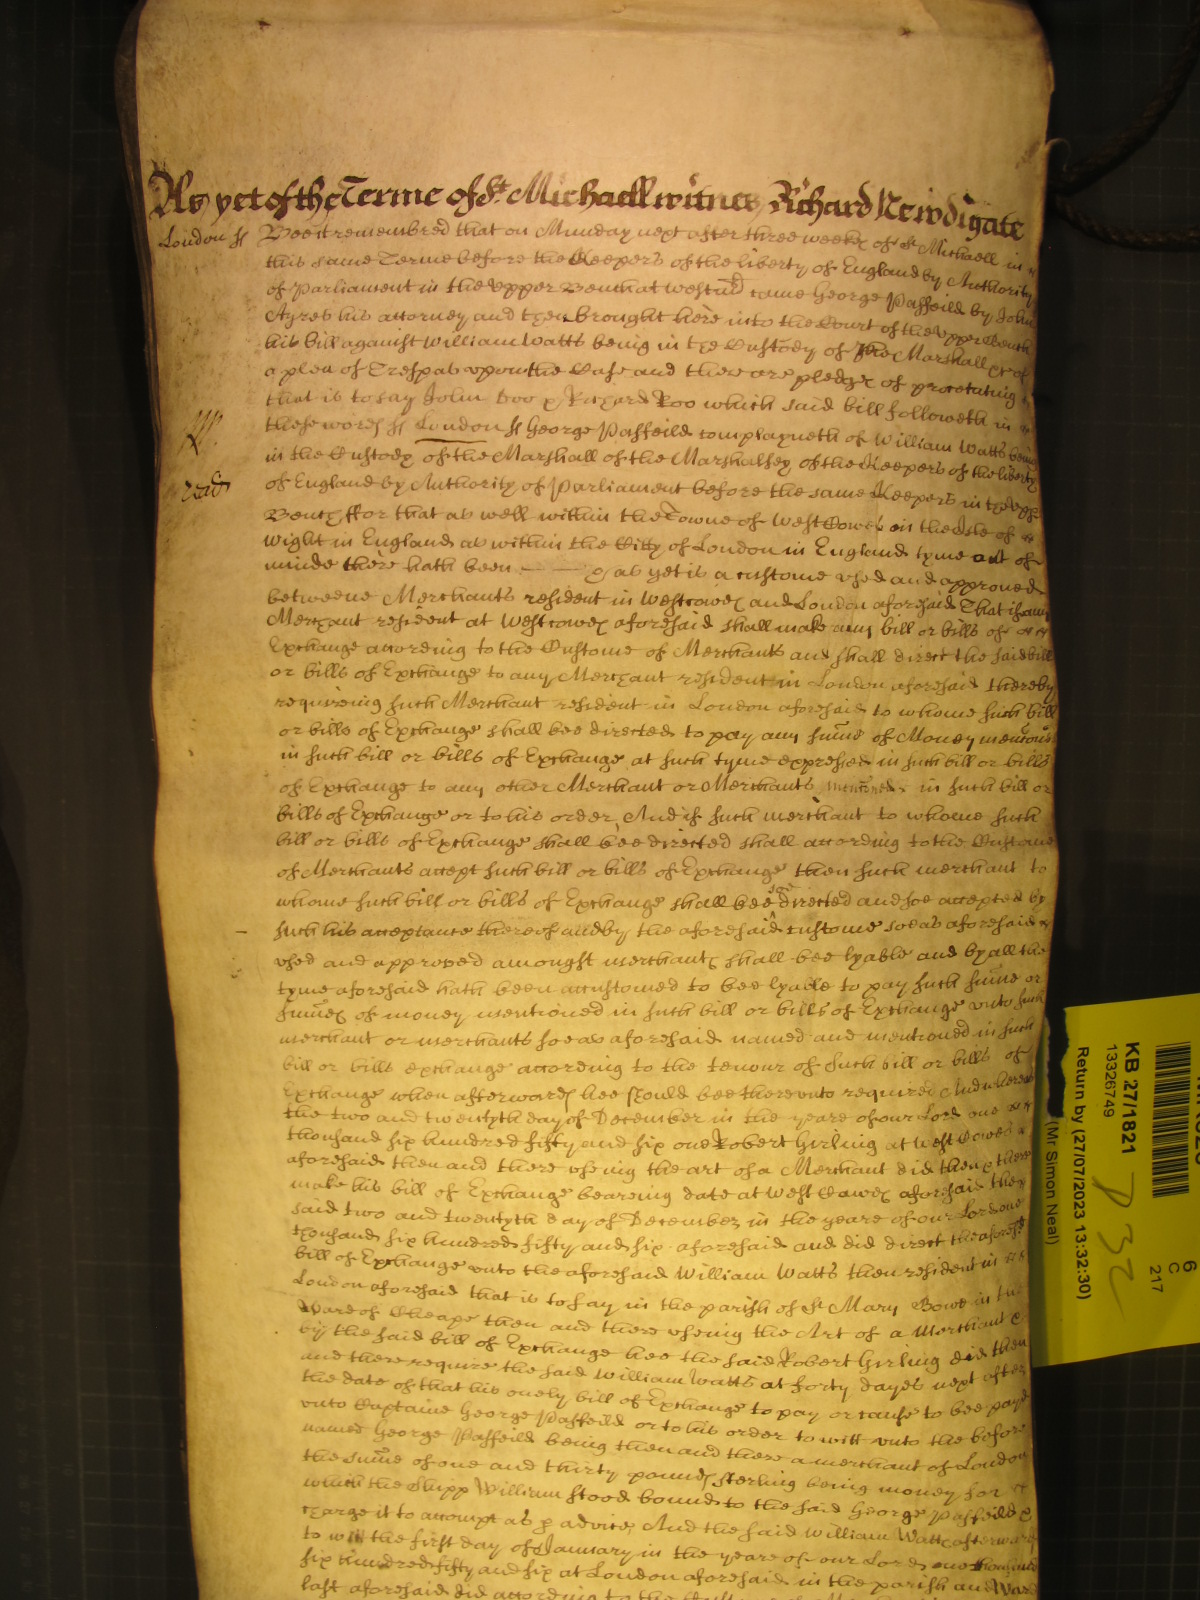 As yet of the Terme of St. Michaell witnes Richard Newdigate
London ss Bee it remembred that on Munday next after three weekes of St Michaell in
this same Terme before the Keepers of the liberty of England by Authority
of Parliament in the upper Bench at Westmr came George Passeild by John
Ayres his attorney and then brought here into the Court of the upper Bench
his bill against William Watts being in the Custody of the Marshall &c of
a plea of Trespas upon the Case and there are pledges of prosecuting
that is to say John Doo & Richard Roo which said bill followeth in
these words ss London ss George Passeild complayneth of William Watts being
in the Custody of the Marshall of the Marshalsey of the Keepers of the liberty
of England by Authority of Parliament before the same Keepers in the upper
Bench ffor that as well within the Towne of West Cowes in the Isle of
wight in England as within the Citty of London in England tyme out of
minde there hath been & as yet is a custome used and approved
betweene Merchants resident in Westcowes and London aforesaid That if any
Merchant resident at Westcowes aforesaid shall make any bill or bills of
Exchange according to the Custome of Merchants and shall direct the said bill
or bills of Exchange to any Merchant resident in London aforesaid thereby
requireing such Merchant resident in London aforesaid to whome such bill
or bills of Exchange shall bee directed to pay any sume of Money menconed
in such bill or bills of Exchange at such tyme expressed in such bill or bills
of Exchange to any other Merchant or Merchants menconed in such bill or
bills of Exchange or to his order, And if such merchant to whome such
bill or bills of Exchange shall bee directed shall according to the Custome
of Merchants accept such bill or bills of Exchange then such merchant to
whome such bill or bills of Exchange shall bee soe directed and soe accepted by
such his acceptance thereof and by the aforesaid custome soe as aforesaid
used and approved amongst merchants shall bee lyable and by all the
tyme aforesaid hath been accustomed to bee lyable to pay such sume or
sumes of money mentioned in such bill or bills of Exchange unto such
merchant or merchants soe as aforesaid named and mentioned in such
bill or bills exchange according to the tenour of such bill or bills of
Exchange when afterwards hee should bee thereunto required And whereas
the two and twentyth day of December in the yeare of our Lord one
thousand six hundred fifty and six one Robert Girling at West Cowes
aforesaid then and there useing the art of a Merchant did then & there
make his bill of Exchange beareing date at West Cowes aforesaid the
said two and twentyth day of December in the yeare of our Lord one
thousand six hundred fifty and six aforesaid and did direct the aforesd
bill of Exchange unto the aforesaid William Watts then resident in
London aforesaid that is to say in the parish of St Mary Bowe in the
Ward of Cheape then and there useing the Art of a Merchant &
by the said bill of Exchange hee the said Robert Girling did then
and there require the said William Watts at forty dayes next after
the date of that his onely bill of Exchange to pay or cause to bee payd
unto Captaine George Passeild or to his order to witt unto the before
named George Passeild being then and there a merchant of London
the sume of one and thirty pounds sterling being money for
which the Shipp William stood bound to the said George Passeild &
charge it to accompt as p advice And the said William Watts afterwards
to witt the first day of January in the yeare of our Lord one thousand
six hundred fifty and six at London aforesaid in the parish and Ward
last aforesaid did according to the
KB 27/1821
13326749
Return by (27/07/2023 13:32:30)
(Mr Simon Neal)
6
C
217